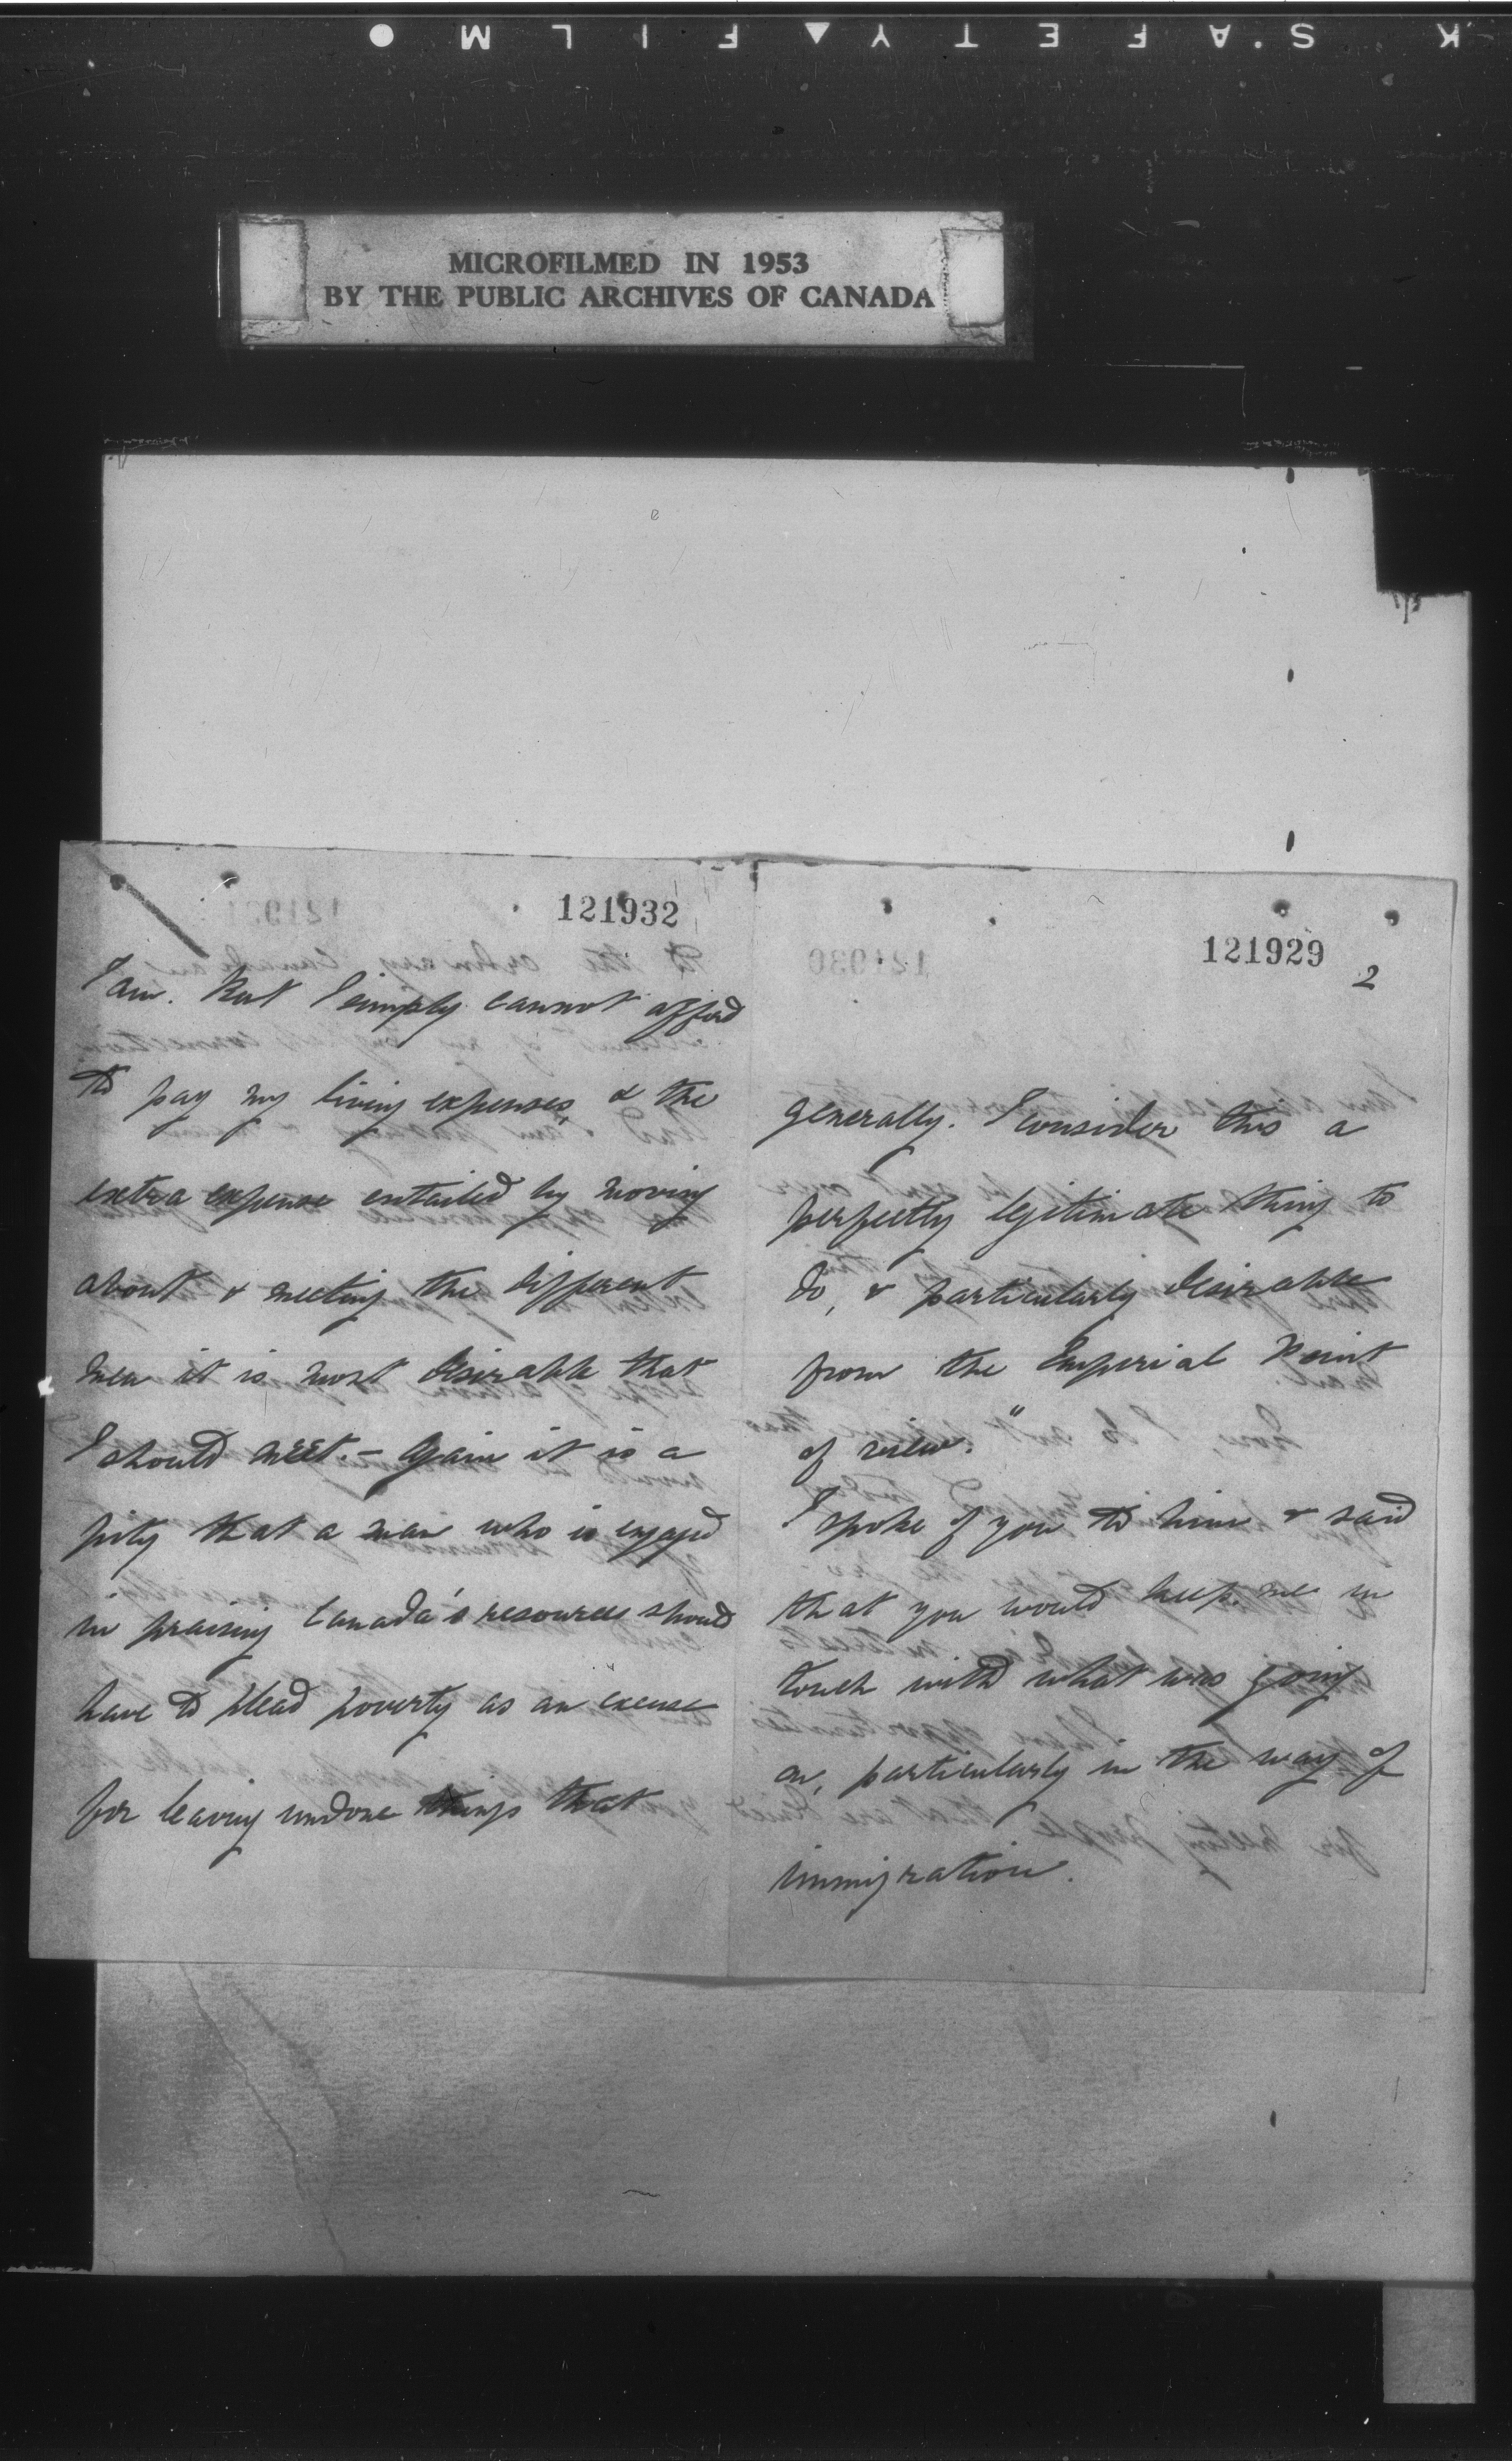 K S'.A F E T Y ▲ F I L M ●
MICROFILMED IN 1953
BY THE PUBLIC ARCHIVES OF CANADA
121932
I am. But I simply cannot afford
to pay my living expenses & the
extra expense entailed by moving
about & meeting the different
men it is most desirable that
I should meet. - Again it is a
pity that a man who is engaged
in praising Canada's resources should
have to plead poverty as an excuse
for leaving undone things that
121929
2
generally. I consider this a
perfectly legitimate thing to
do, & particularly desirable
from the Imperial point
of view."
I spoke of you to him & said
that you would keep me in
touch with what was going
on, particularly in the way of
immigration.